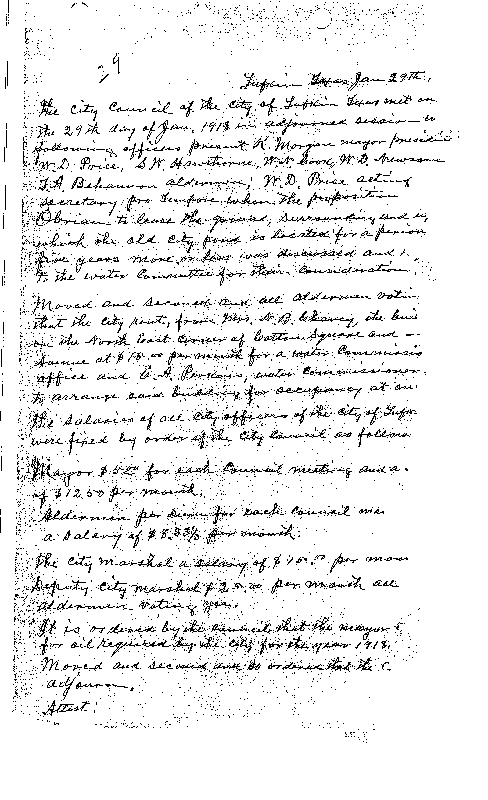 29
Lufkin Texas Jan 29th,
The City Council of the City of Lufkin Texas met on
the 29th day of Jan. 1918 in adjourned session
following officers present K. Morgan mayor
W.D. Price, S.W. Hawthorne, W.D. Newsom
Aldermen, W.D. Price acting
secretary pro tempore when the proposition
Obrian to lease the ground, surrounding and in
which the old City pond is located for a period
five years more or less was discussed and
to the water Committee for their consideration.
Moved and second and all aldermen votin
that the City rent, from Mrs. N.B. the
on the North East Corner of Cotton Square and
Avenue at $18.00 per month for a water Commissio
office and water Commissioner
to arrange said building for occupancy at on
The Salaries of all City officers of the City of Lufk
were fixed by order of the City Council as follow
Mayor $5.00 for each Council meeting and a
of $12.50 per month.
Aldermen per diem for each Council
a Salary of $8.33⅓ per month.
The City Marshal a salary of per mon
Deputy City Marshal per month all
Aldermen voting yea.
It is ordered by the Council that the mayor
for oil required by the City for the year 1918.
Moved and second and so ordered that the C
adjourn.
Attest: